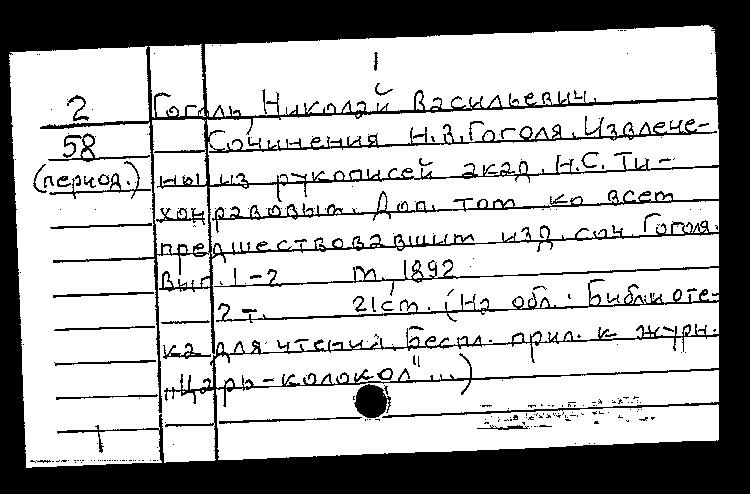 1
2 Гоголь, Николай Васильевич.
58 Сочинения Н.В.Гоголя. Извлече-
(период.) ны из рукописей акад. Н.С. Ти-
хонравовым. Доп. том ко всем
предшествовавшим изд. соч. Гоголя.
Вып. 1-2 М., 1892
2 т. 21 см. (На обл.: Библиоте-
ка для чтения. Беспл. прил. к журн.
"Царь-колокол"...)
1